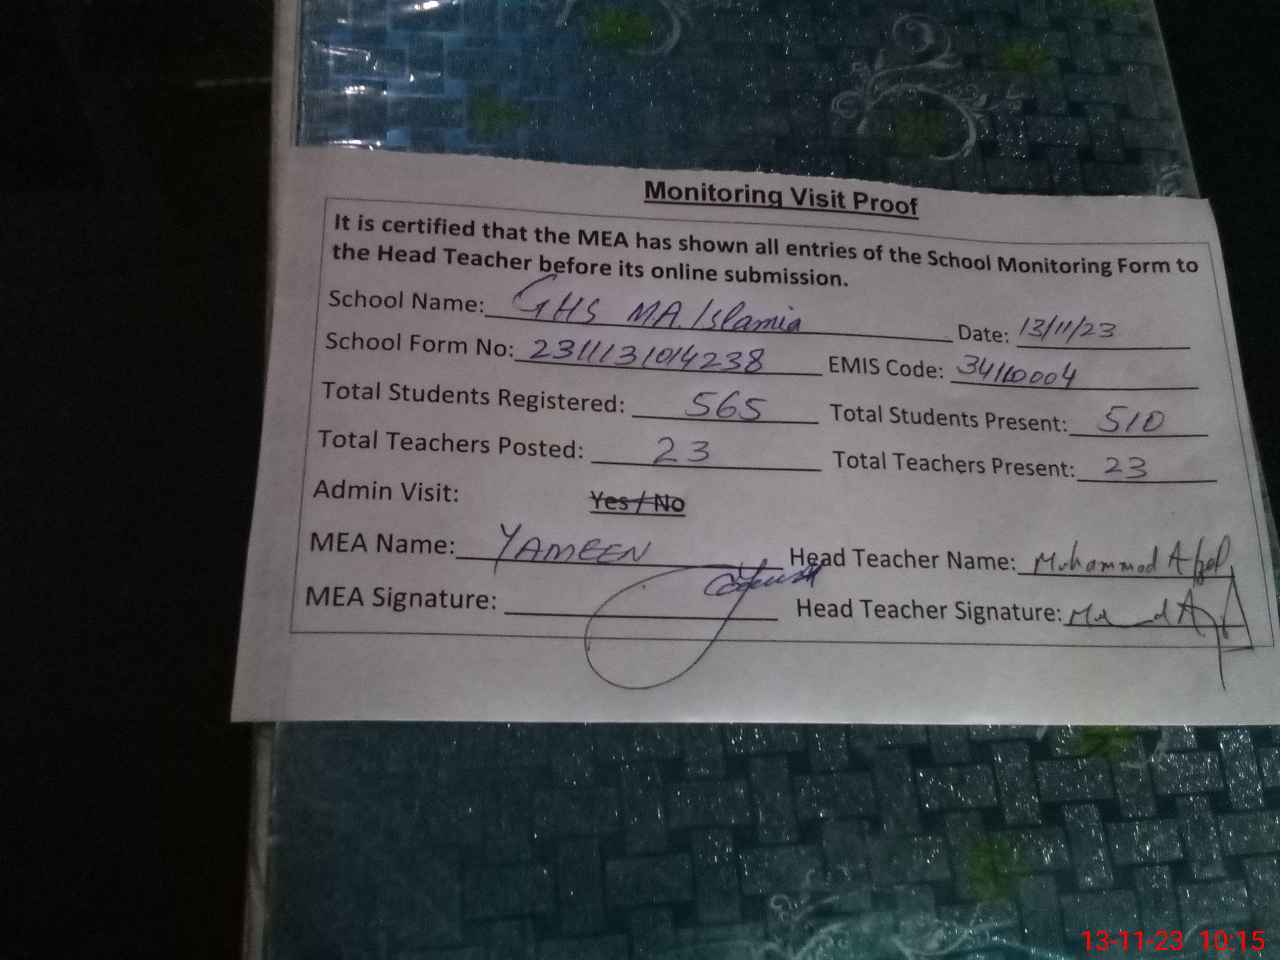 Monitoring Visit Proof
It is certified that the MEA has shown all entries of the School Monitoring Form to
the Head Teacher before its online submission.
School Name: GHS M.A. Islamia Date: 13/11/23
School Form No: 2311131014238 EMIS Code: 34110004
Total Students Registered: 565 Total Students Present: 510
Total Teachers Posted: 23 Total Teachers Present: 23
Admin Visit: Yes / No
MEA Name: YAMEEN Head Teacher Name: Muhammad Afzal
MEA Signature: Head Teacher Signature:
13-11-23 10:15